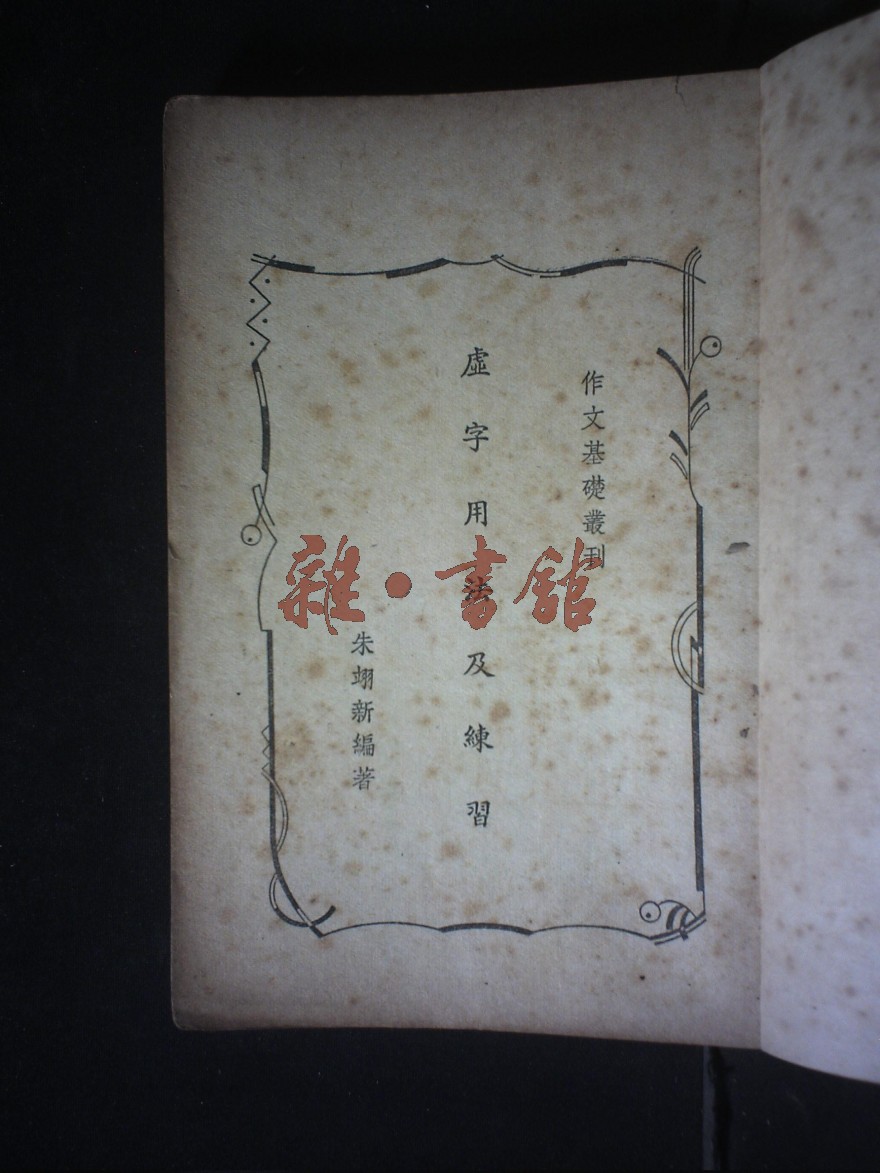 作文基礎叢刊
虛字用法及練習
朱翊新編著
雜·書館